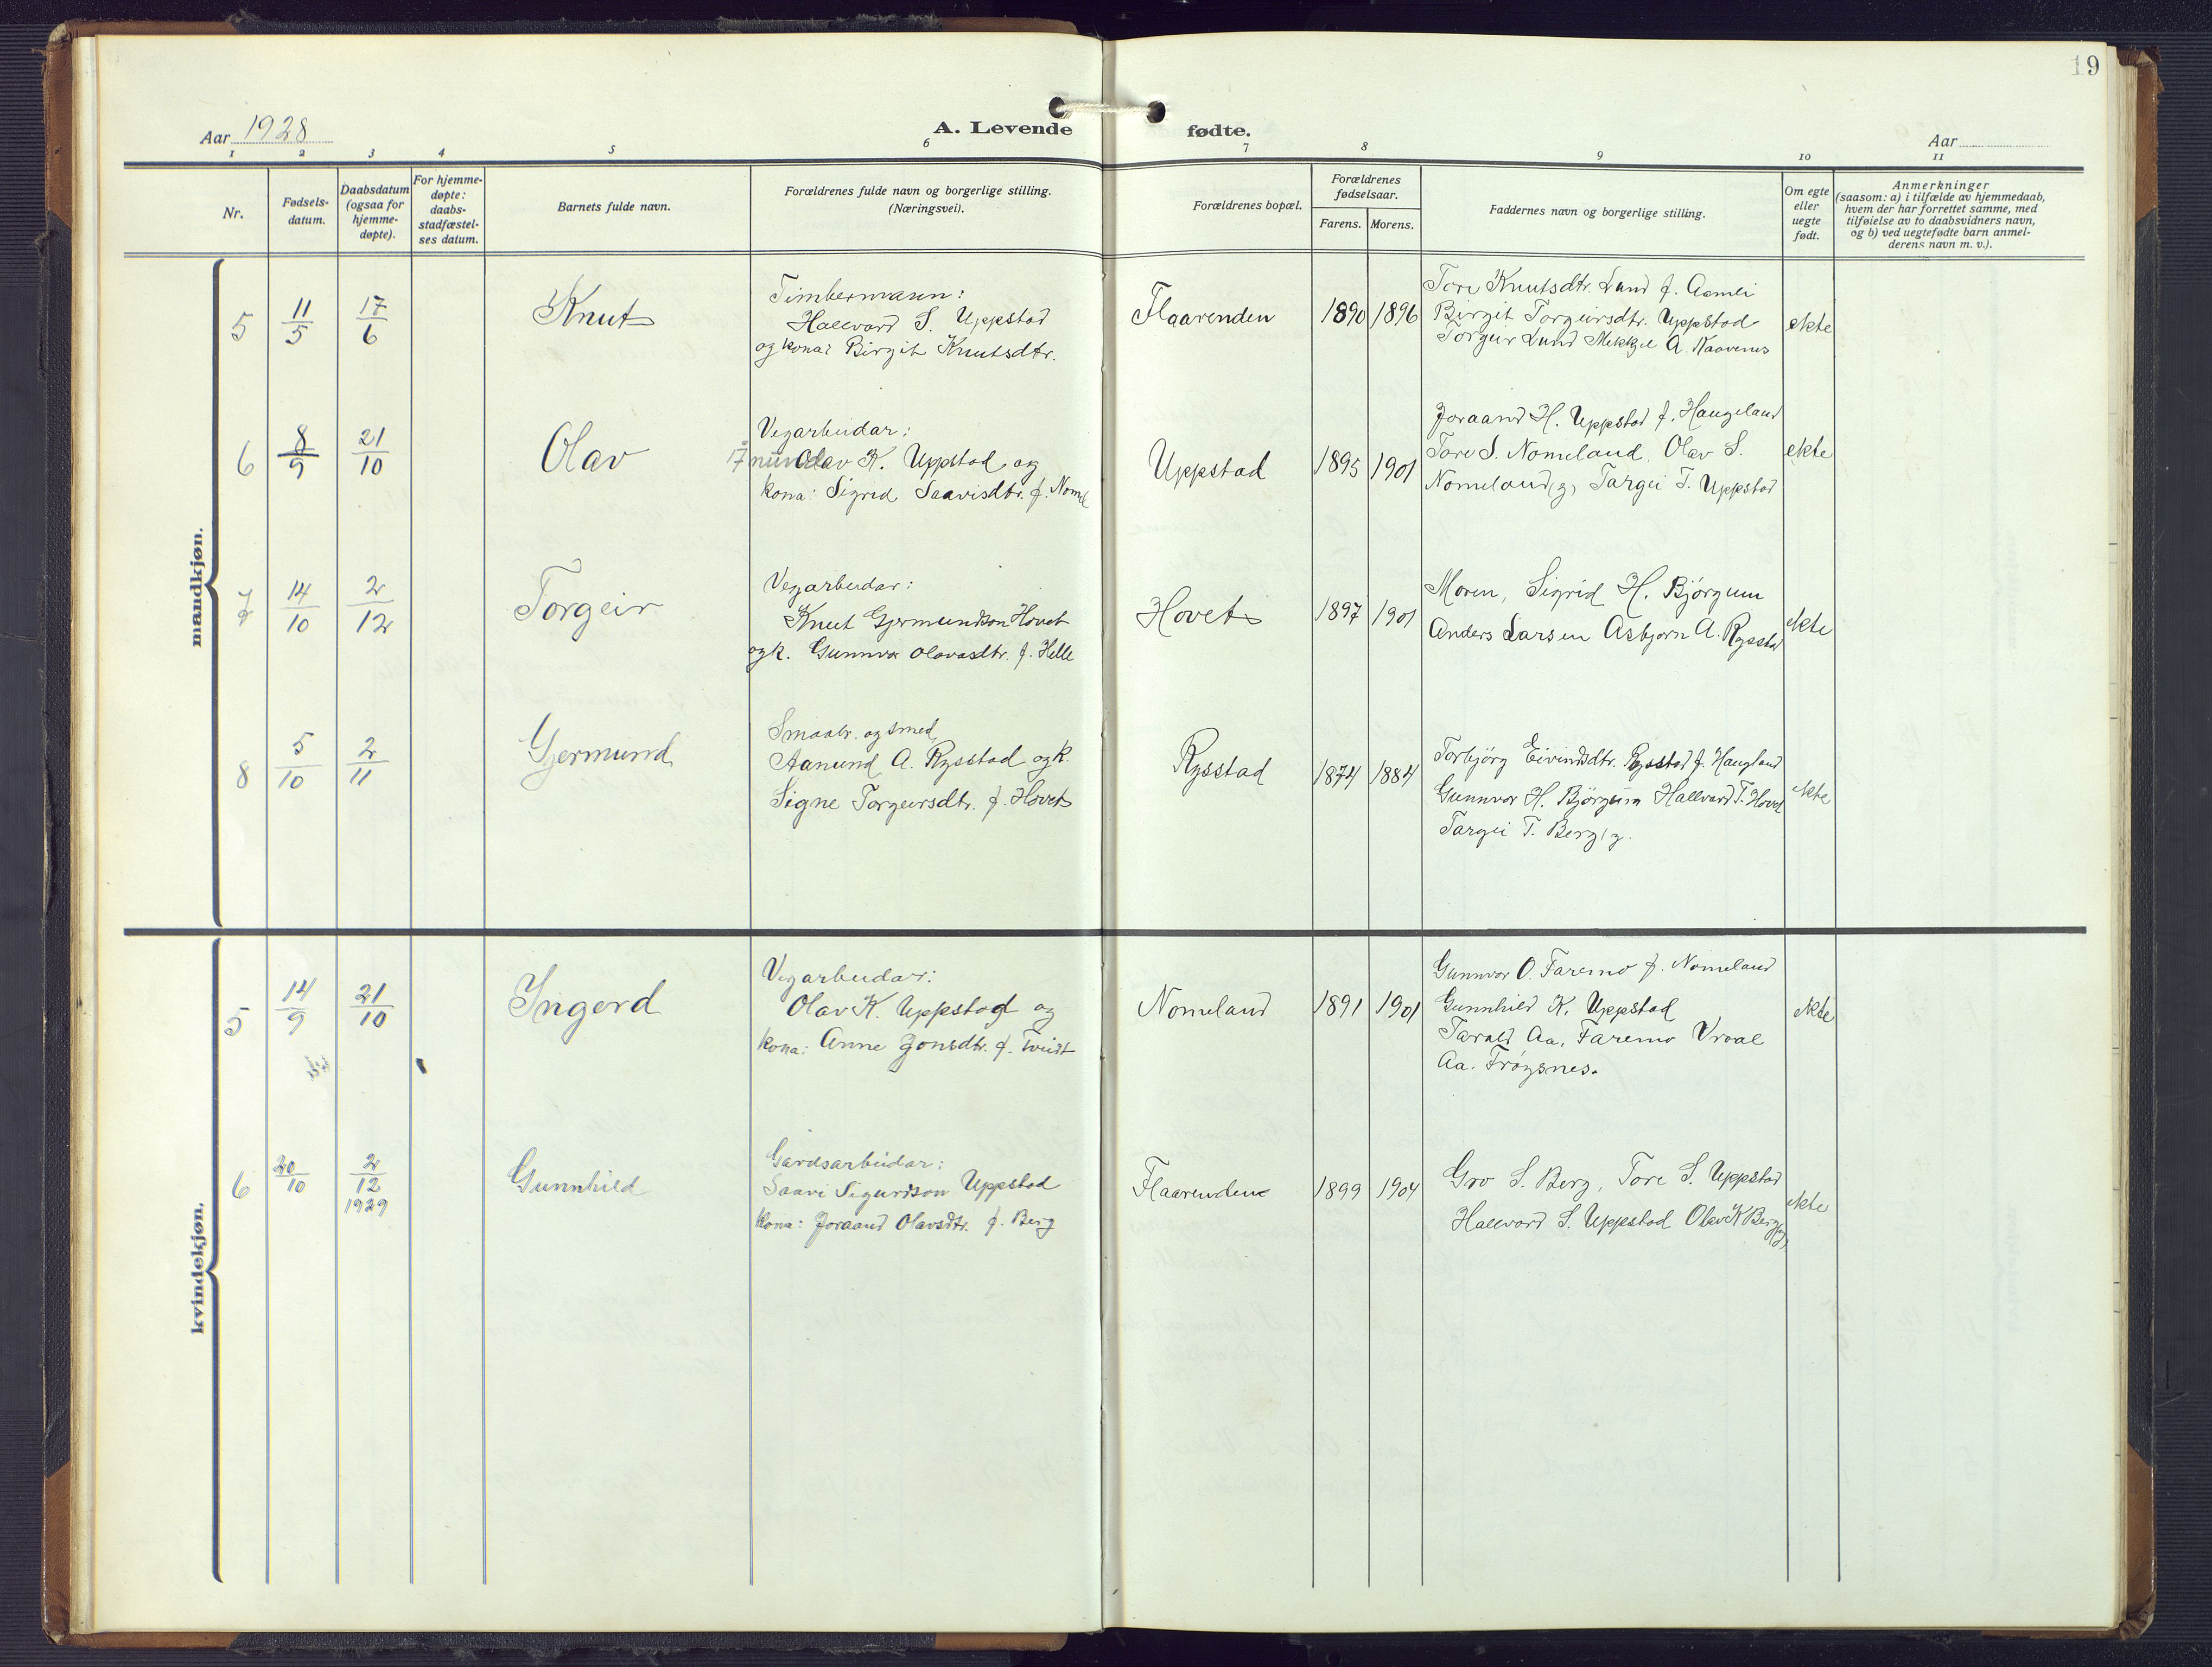 19
Aar 1928
A. Levende fødte.
Aar
1 2 3 4 5 6 7 8 9 10 11
Nr.
Fødsels-
datum.
Daabsdatum
(ogsaa for
hjemme-
døpte).
For hjemme-
døpte:
daabs-
stadfæstel-
ses datum.
Barnets fulde navn.
Forældrenes fulde navn og borgerlige stilling.
(Næringsvei).
Forældrenes bopæl.
Forældrenes
fødselsaar.
Farens. Morens.
Faddernes navn og borgerlige stilling.
Om egte
eller
uegte
født.
Anmerkninger
(saasom: a) i tilfælde av hjemmedaab,
hvem der har forrettet samme, med
tilføielse av to daabsvidners navn,
og b) ved uegtefødte barn anmel-
derens navn m. v.).
mandkjøn.
5 11/5 17/6 Knut
Timbermann:
Hallvard S. Uppstad
og kona: Birgit Knutsdtr.
Flaarenden 1890 1896
Tore Knutsdtr. Lund f. Aamli
Birgit Torgeirsdtr. Uppstad
Torgeir Lund Mikkjel A.
ekte
6 8/9 21/10 Olav
Vegarbeidar:
Olav K. Uppstad og
kona: Sigrid Saavisdtr. f. Nomel
Uppstad 1895 1901
Joraand H. Uppstad f. Haugeland
Tore S. Nomeland, Olav S.
Nomeland, g, Targei T. Uppstad
ekte
7 14/10 2/12 Torgeir
Vegarbeidar:
Knut Gjermundson Hovet
og k. Gunnvor Olavasdtr. f. Helle
Hovet 1897 1901
Moren, Sigrid H. Bjørgum
Anders Larsen Asbjørn A. Rysstad
ekte
8 5/10 2/11 Gjermund
Smaabr. og smed
Aanund A. Rysstad og k.
Signe Torgeirsdtr. f. Hovet
Rysstad 1874 1884
Torbjørg Eivindsdtr. Rysstad f. Haugland
Gunnvor H. Bjørgum Hallvard T. Hovet
Targei T. Berg, g.
ekte
kvindekjøn.
5 14/9 21/10 Ingerd
Vegarbeidar:
Olav K. Uppstad og
kona: Anne Jonsdtr. f. Tveidt
Nomeland 1891 1901
Gunnvor O. Faremo f. Nomeland
Gunnhild K. Uppstad
Tarald Aa. Faremo Vroal
Aa. Frøysnes.
ekte
6 20/10 2/12 1929 Gunnhild
Gardsarbeidar:
Saavi Sigurdson Uppstad
kona: Joraand Olavsdtr. f. Berg
Flaarenden 1899 1904
Gro S. Berg, Tore S. Uppstad
Hallvard S. Uppstad Olav K Berg, g,
ekte